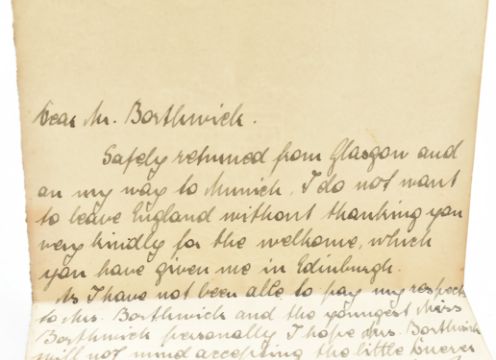 Dear Mr. Borthwick.
Safely returned from Glasgow and
on my way to Munich, I do not want
to leave England without thanking you
very kindly for the welhome, which
you have given me in Edinburgh.
As I have not been able to pay my respects
to Mrs. Borthwick and the youngest Miss
Borthwick personally I hope Mrs. Borthwick
will not mind accepting the little